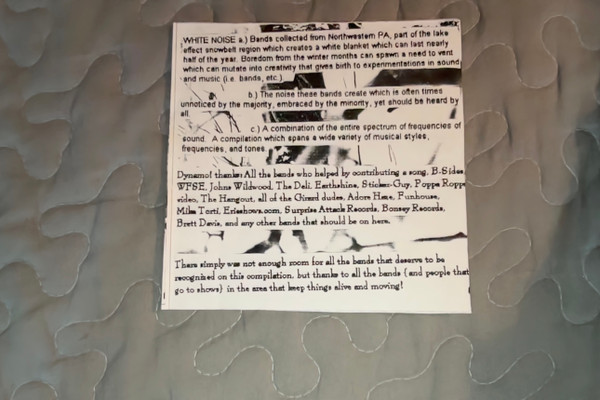 WHITE NOISE a.) Bands collected from Northwestern PA, part of the lake
effect snowbelt region which creates a white blanket which can last nearly
half of the year. Boredom from the winter months can spawn a need to vent
which can mutate into creativity that gives birth to experimentations in sound
and music (i.e. bands, etc.)
b.) The noise these bands create which is often times
unnoticed by the majority, embraced by the minority, yet should be heard by
all.
c.) A combination of the entire spectrum of frequencies of
sound. A compilation which spans a wide variety of musical styles,
frequencies, and tones.
Dynamo! thanks: All the bands who helped by contributing a song, B-Sides,
WFSE, Johns Wildwood, The Deli, Earthshine, Sticker-Guy, Poppa Roppa
video, The Hangout, all of the Girard dudes, Adore Haze, Funhouse,
Mike Torti, Erieshows.com, Surprise Attack Records, Bonsey Records,
Brett Davis, and any other bands that should be on here.
There simply was not enough room for all the bands that deserve to be
recognized on this compilation, but thanks to all the bands (and people that
go to shows) in the area that keep things alive and moving!